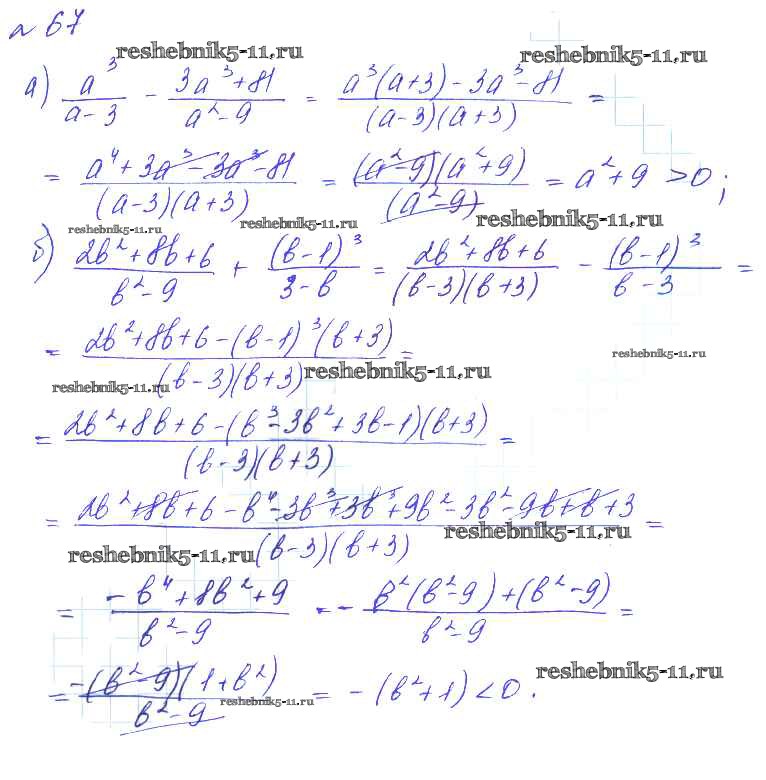 № 67
reshebnik5-11.ru reshebnik5-11.ru
а) a³/(a-3) - (3a³+81)/(a²-9) = (a³(a+3)-3a³-81)/((a-3)(a+3)) =
= (a⁴+3a³-3a³-81)/((a-3)(a+3)) = ((a²-9)(a²+9))/(a²-9) = a²+9 >0;
reshebnik5-11.ru reshebnik5-11.ru reshebnik5-11.ru
б) (2b²+8b+6)/(b²-9) + (b-1)³/(3-b) = (2b²+8b+6)/((b-3)(b+3)) - (b-1)³/(b-3) =
= (2b²+8b+6-(b-1)³(b+3))/((b-3)(b+3)) =
reshebnik5-11.ru reshebnik5-11.ru reshebnik5-11.ru
= (2b²+8b+6-(b³-3b²+3b-1)(b+3))/((b-3)(b+3)) =
= (2b²+8b+6-b⁴-3b³+3b³+9b²-3b²-9b+b+3)/((b-3)(b+3)) =
reshebnik5-11.ru reshebnik5-11.ru
= (-b⁴+8b²+9)/(b²-9) = - (b²(b²-9)+(b²-9))/(b²-9) =
= (-(b²-9)(1+b²))/(b²-9) = -(b²+1) <0.
reshebnik5-11.ru reshebnik5-11.ru